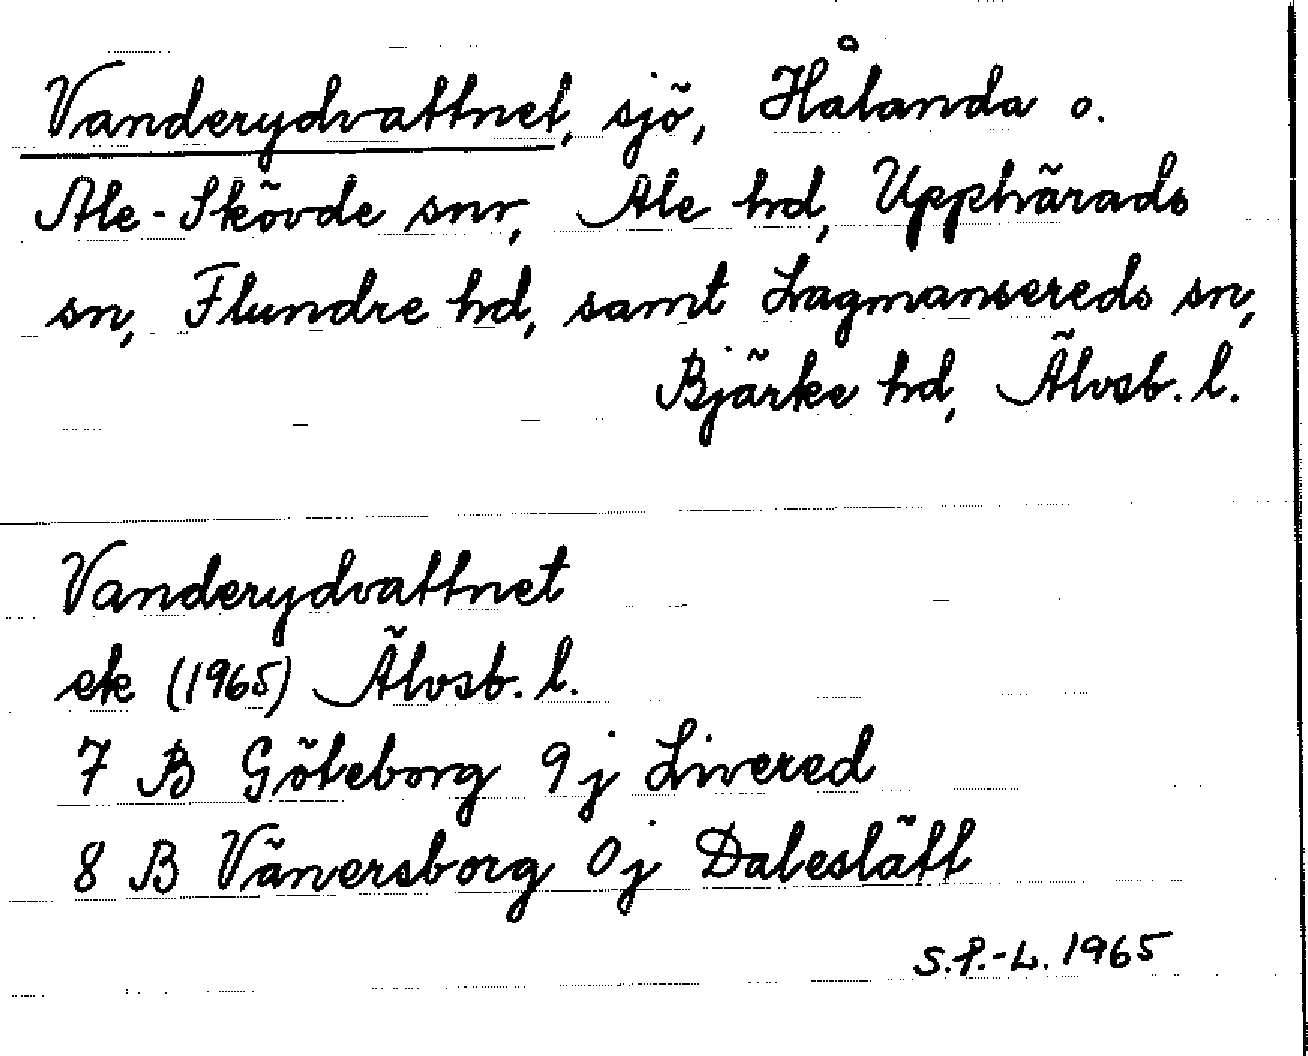 Vanderydvattnet, sjö, Hålanda o.
Ale-Skövde snr, Ale hd, Upphärads
sn, Flundre hd, samt Lagmansereds sn,
Bjärke hd, Älvsb. l.
Vanderydvattnet
ek (1965) Älvsb. l.
7 B Göteborg 9j Livered
8 B Vänersborg 0j Daleslätt
S.P.-L. 1965